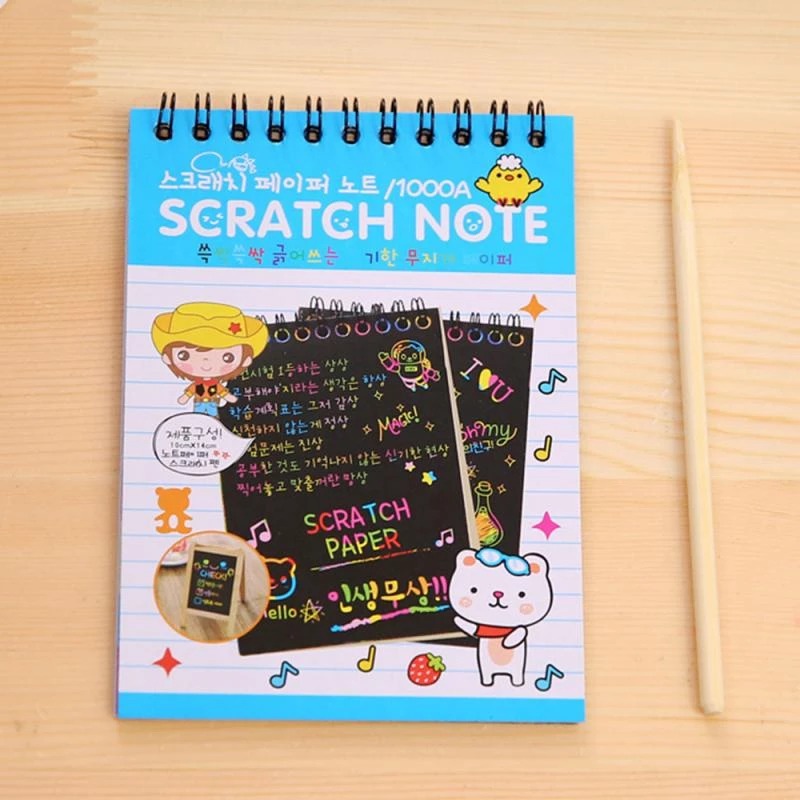 스크래치 페이퍼 노트 /1000A
SCRATCH NOTE
쓱싹쓱싹 긁어쓰는 기한 무지개 페이퍼
1등하는 상상
지라는 생각은 항상
학습계획표는 그저 감상
않는게 정상
문제는 진상
공부한 것도 기억나지 않는 신기한 현상
찍어놓고 맞출꺼란 망상
MAGIC!
SCRATCH
PAPER
Hello
인생무상!!
I
U
Oh my
친구!
제품구성!
10cmX14cm
노트페이퍼
스크래치 펜
CHECK!